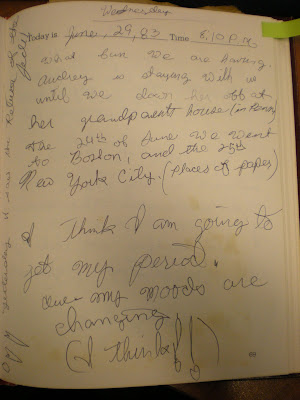 Wednesday
Today is June, 29, 83 Time 8:10 P.M.
What fun we are having.
Audrey is staying with us
until we down her off at
her grandparent house. (in
the 24th of June we went
to Boston, and the 25th
New York City. (places of papes)
I Think I am going to
get my period.
my moods are
changing!
(I think!!)
yesterday it was the Return of the
Jedi